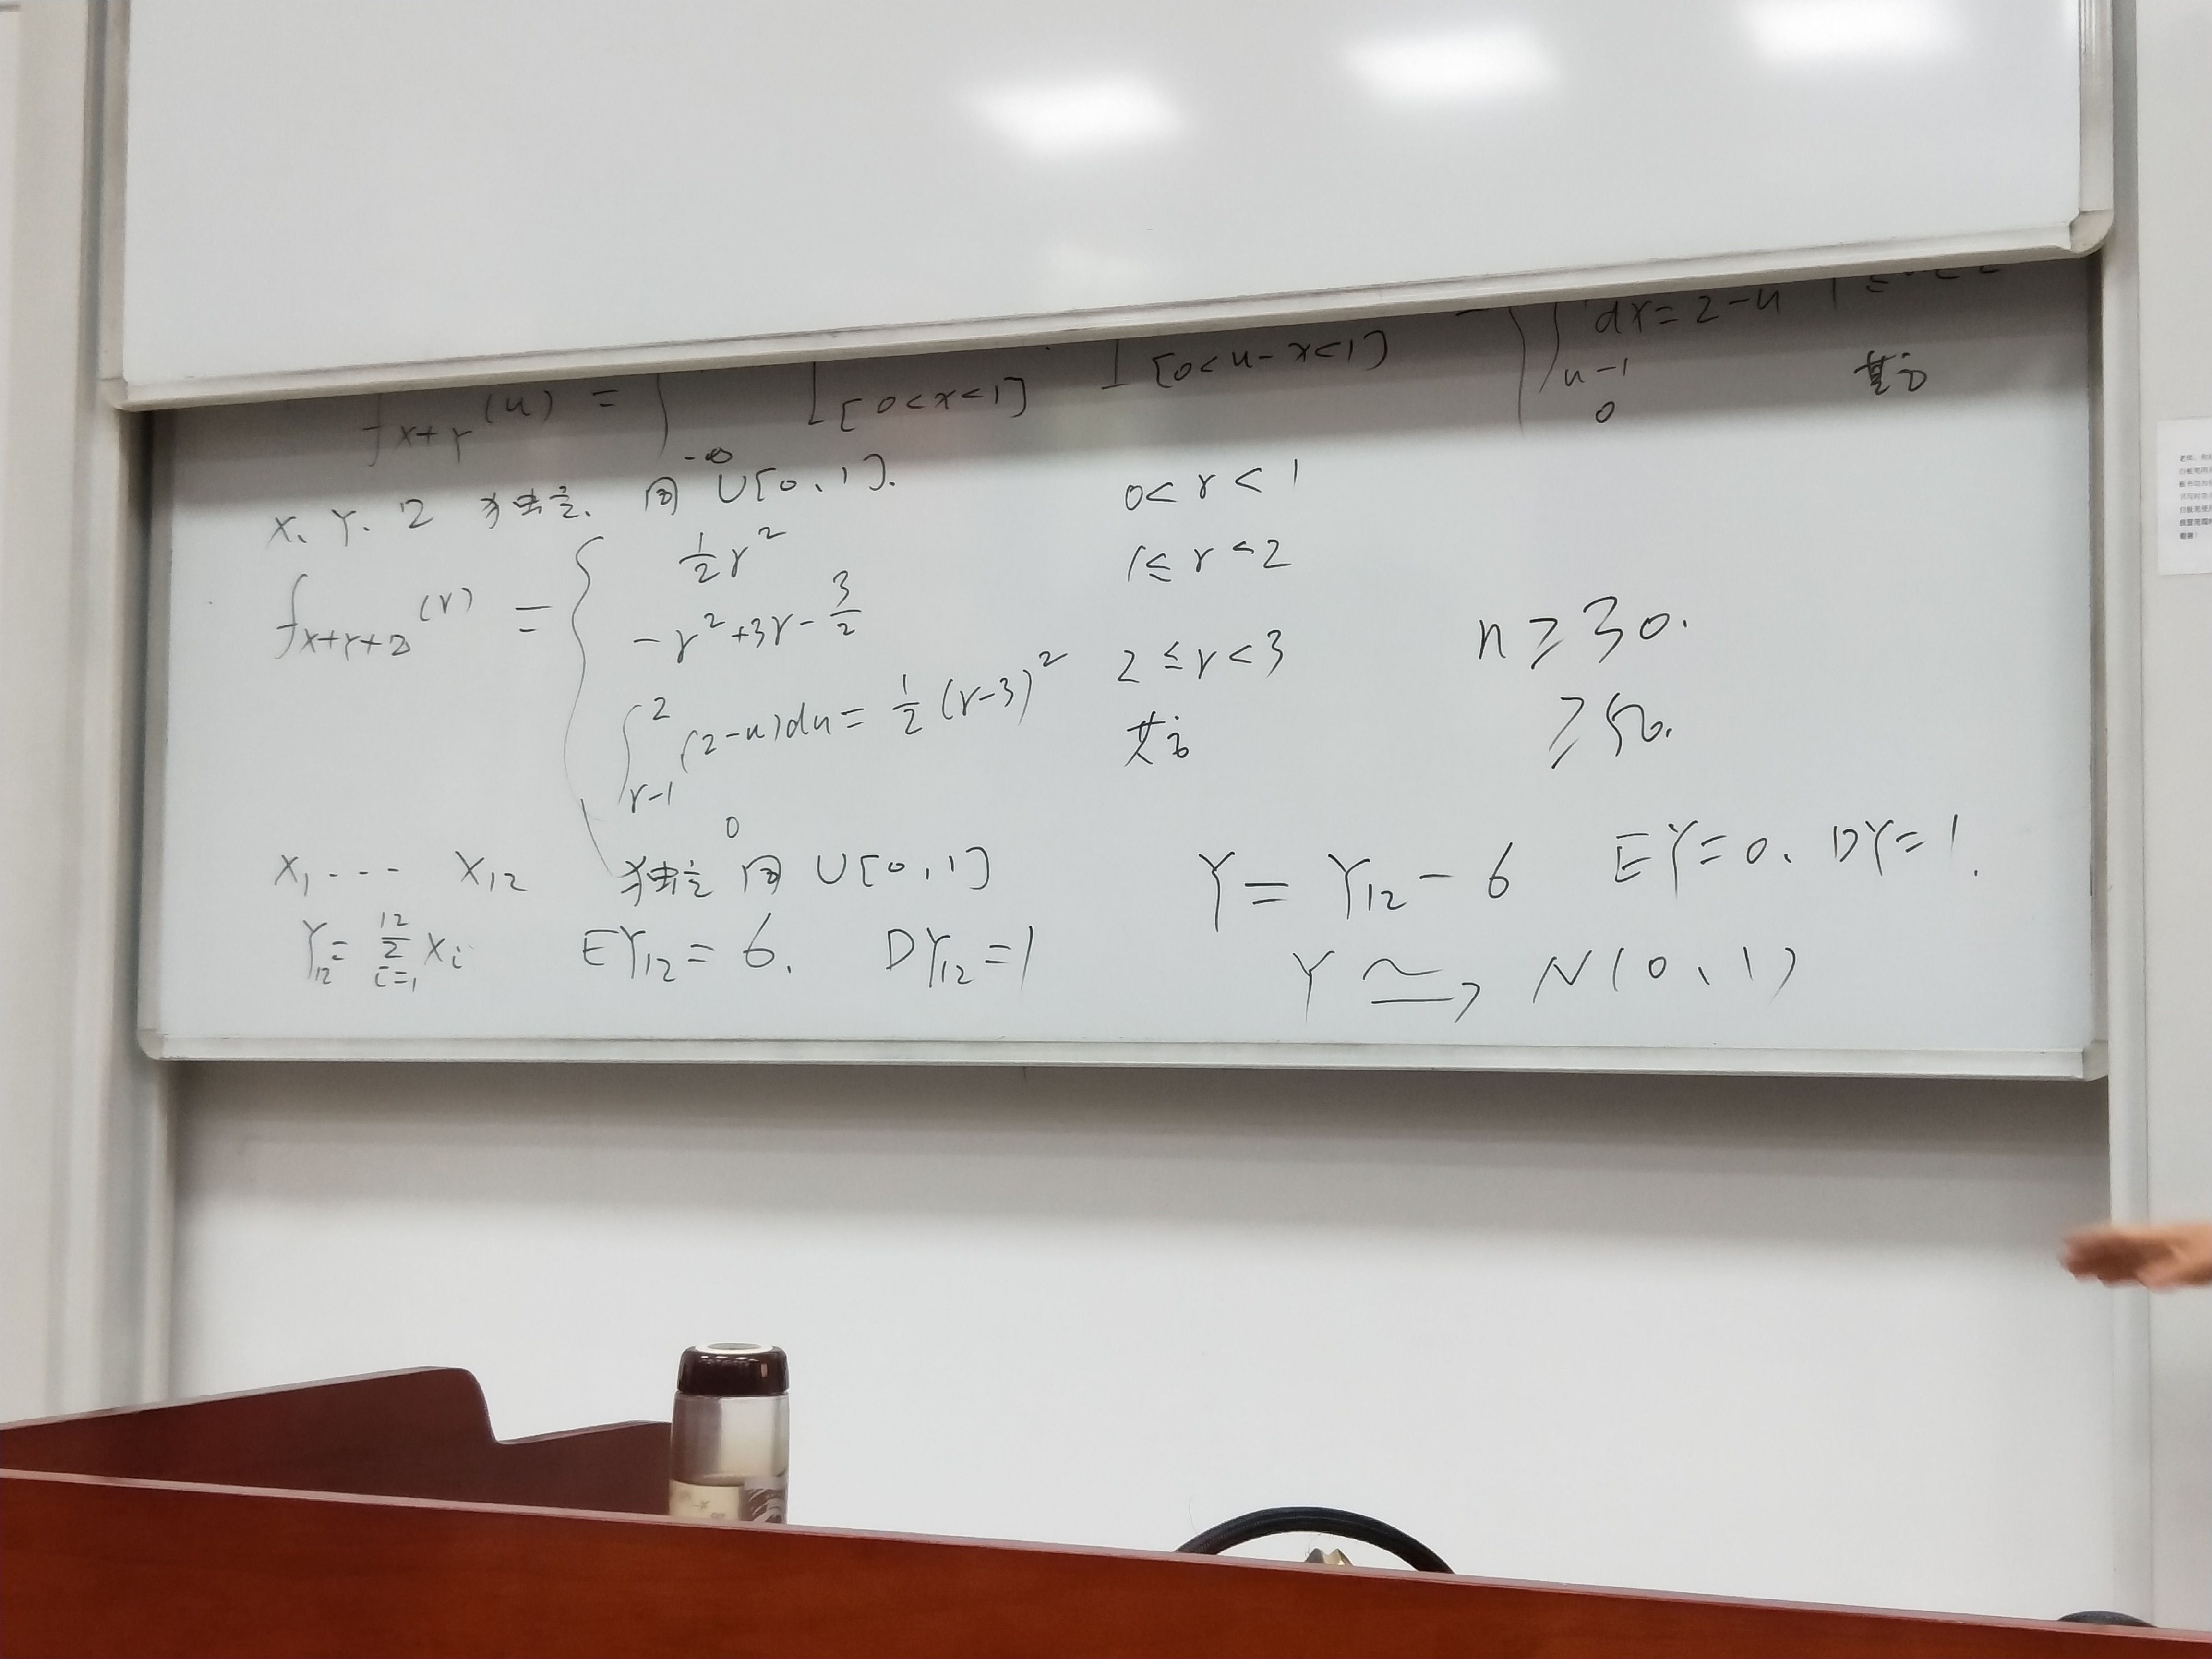 ∫ dx = 2-u 1≤
f_{X+Y}(u) = ∫_{-∞} 1_{[0<x<1]} 1_{[0<u-x<1]} ∫_{u-1}
0 其它
X、Y、Z 独立、同 U[0、1].
f_{X+Y+Z}(r) = { ½r² 0<r<1
-r²+3r-3/2 1≤r<2
∫_{r-1}^{2} (2-u)du = ½(r-3)² 2≤r<3
0 其它
n ≥ 30.
≥ 50.
X₁ --- X₁₂ 独立 同 U[0,1]
Y₁₂ = Σ_{i=1}^{12} X_i EY₁₂ = 6. DY₁₂ = 1
Y = Y₁₂ - 6 EY = 0、DY = 1.
Y ≃→ N(0、1)